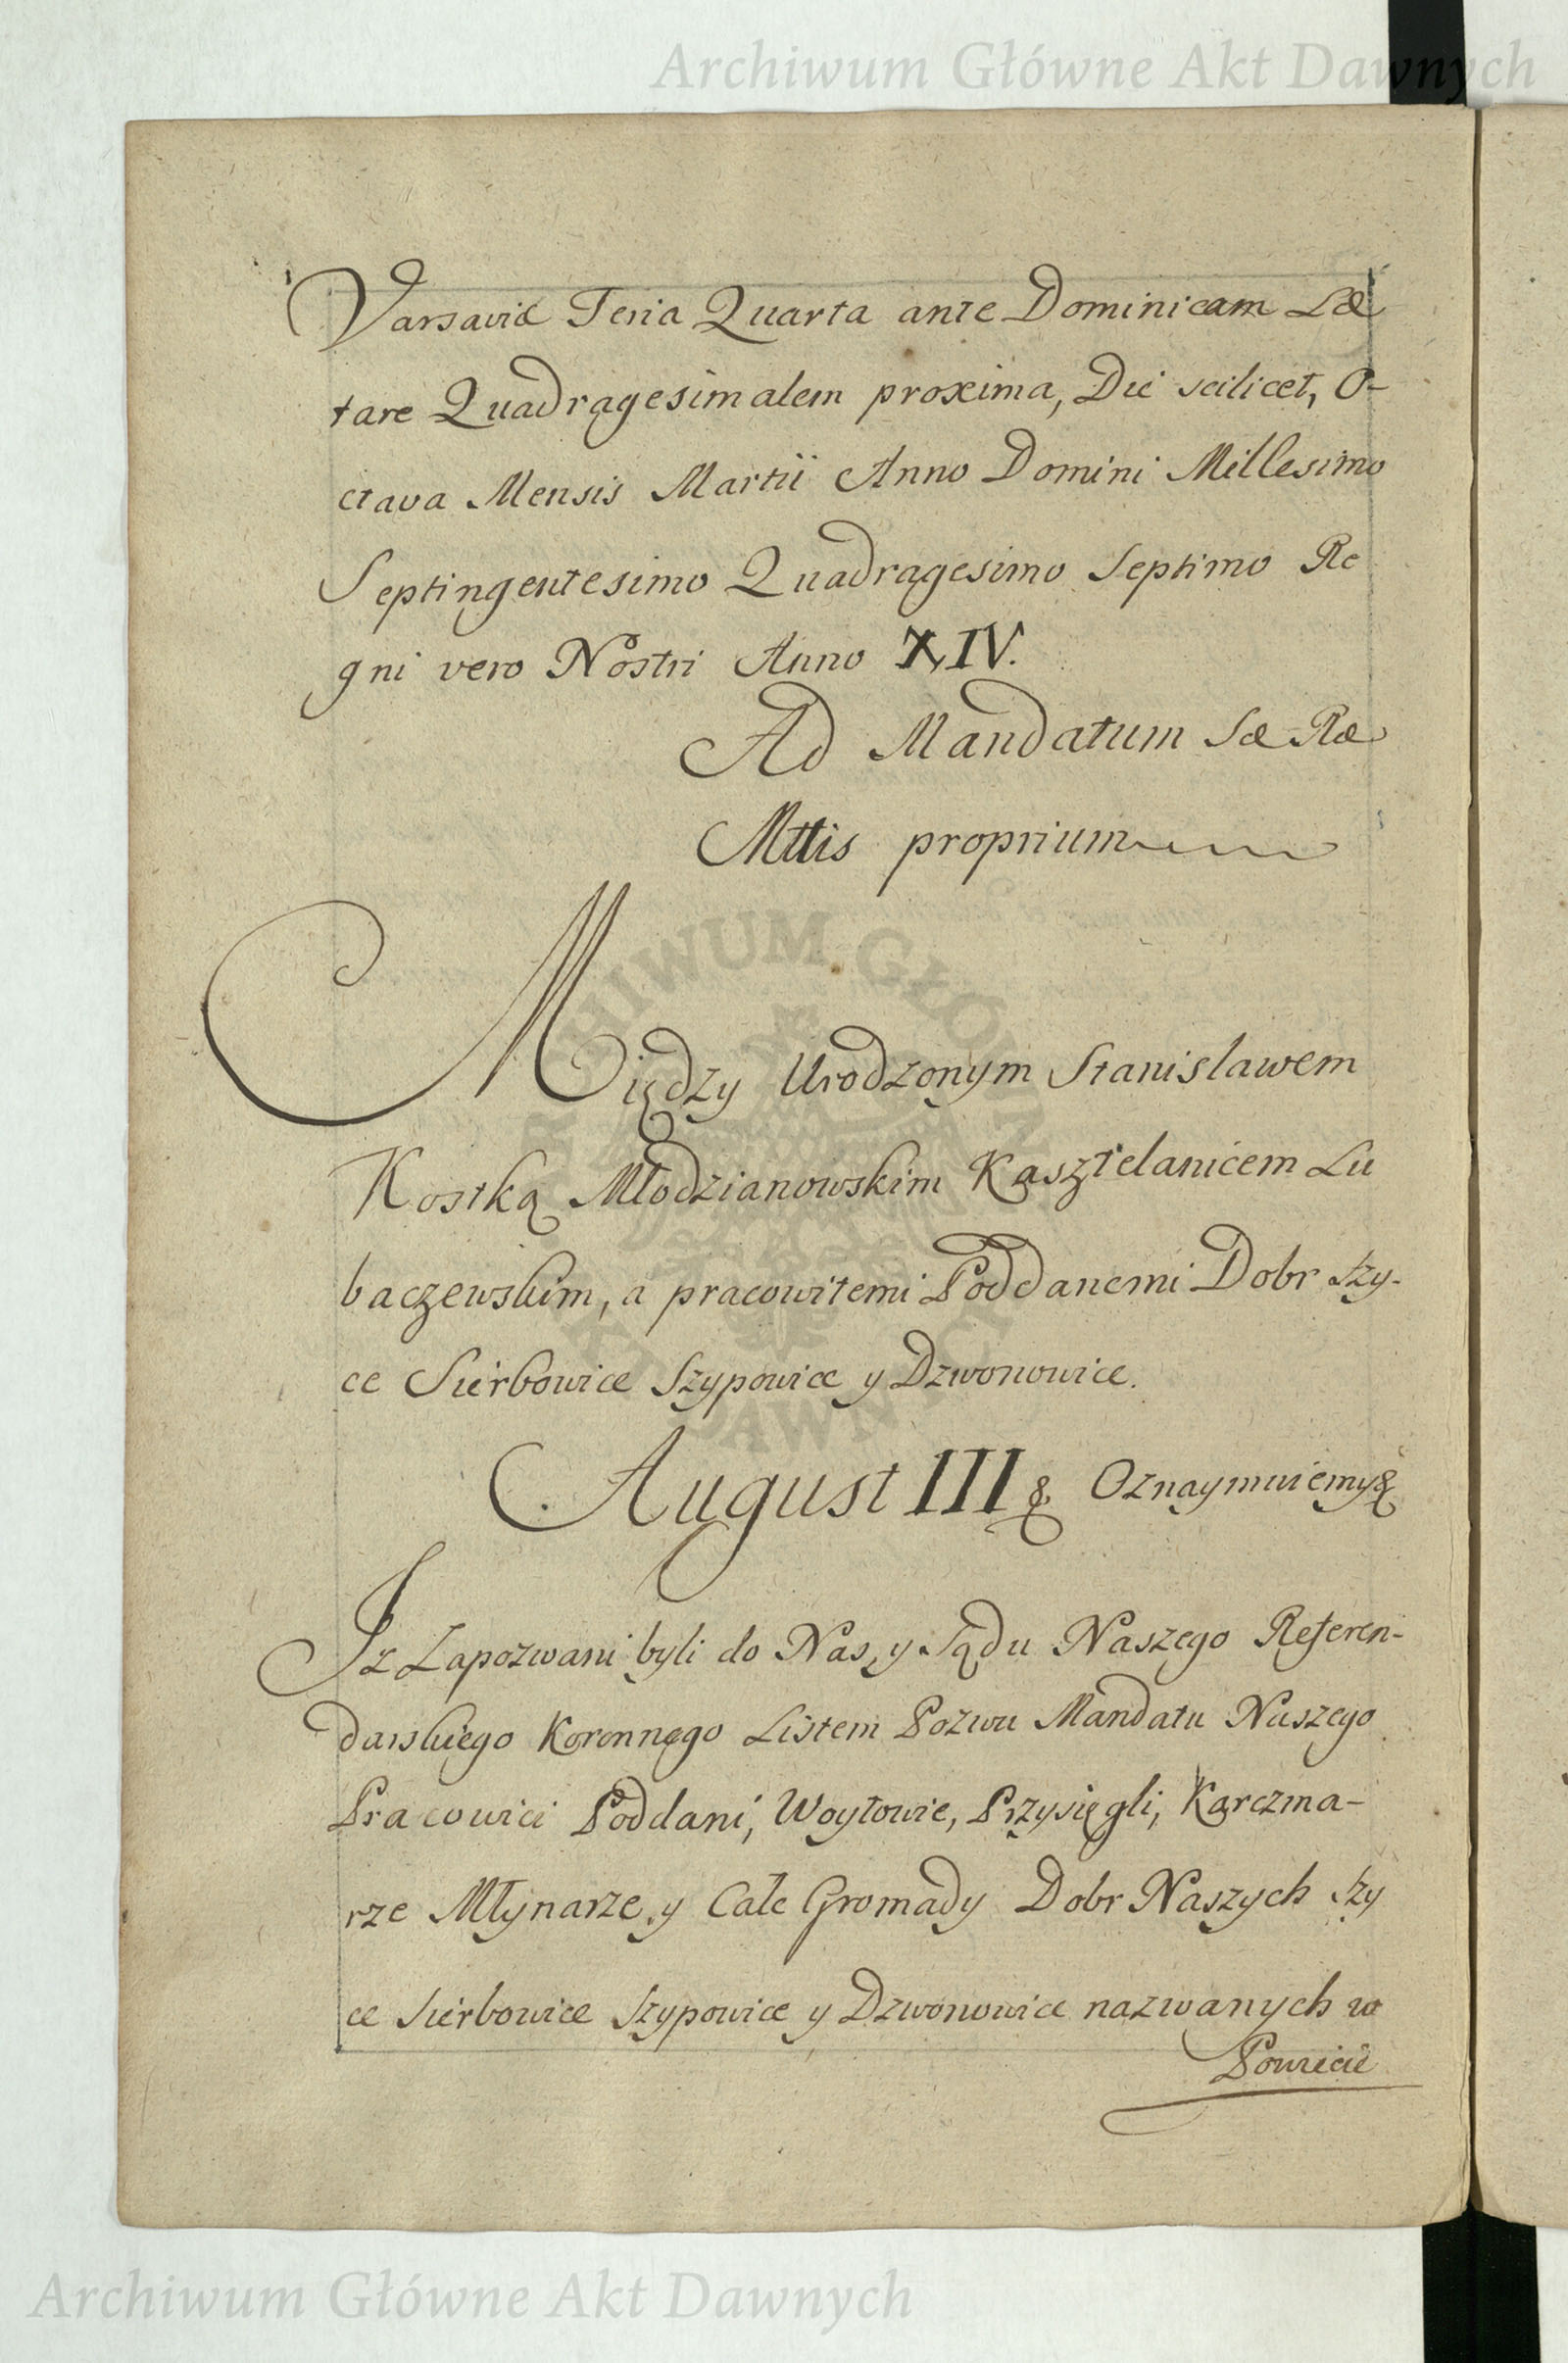 Archiwum Główne Akt Dawnych
Varsaviæ Feria Quarta ante Dominicam Læ
tare Quadragesimalem proxima, Die scilicet, O-
ctava Mensis Martii Anno Domini Millesimo
Septingentesimo Quadragesimo Septimo Re
gni vero Nostri Anno XIV.
Ad Mandatum Sæ Ræ
Mttis proprium
Między Urodzonym Stanislawem
Kostką Młodzianowskim Kasztelanicem Lu
baczewskim, a pracowitemi Poddanemi Dobr Szy-
ce Sierbowice Szypowice y Dzwonowice.
August III & Oznaymuiemy&
Iz Zapozwani byli do Nas, y Sądu Naszego Referen-
darskiego Koronnego Listem Pozwu Mandatu Naszego
Pracowici Poddani, Woytowie, Przysięgli, Karczma-
rze Młynarze, y Cale Gromady Dobr Naszych Szy
ce Sierbowice Szypowice y Dzwonowice nazwanych w
Powiecie
Archiwum Główne Akt Dawnych